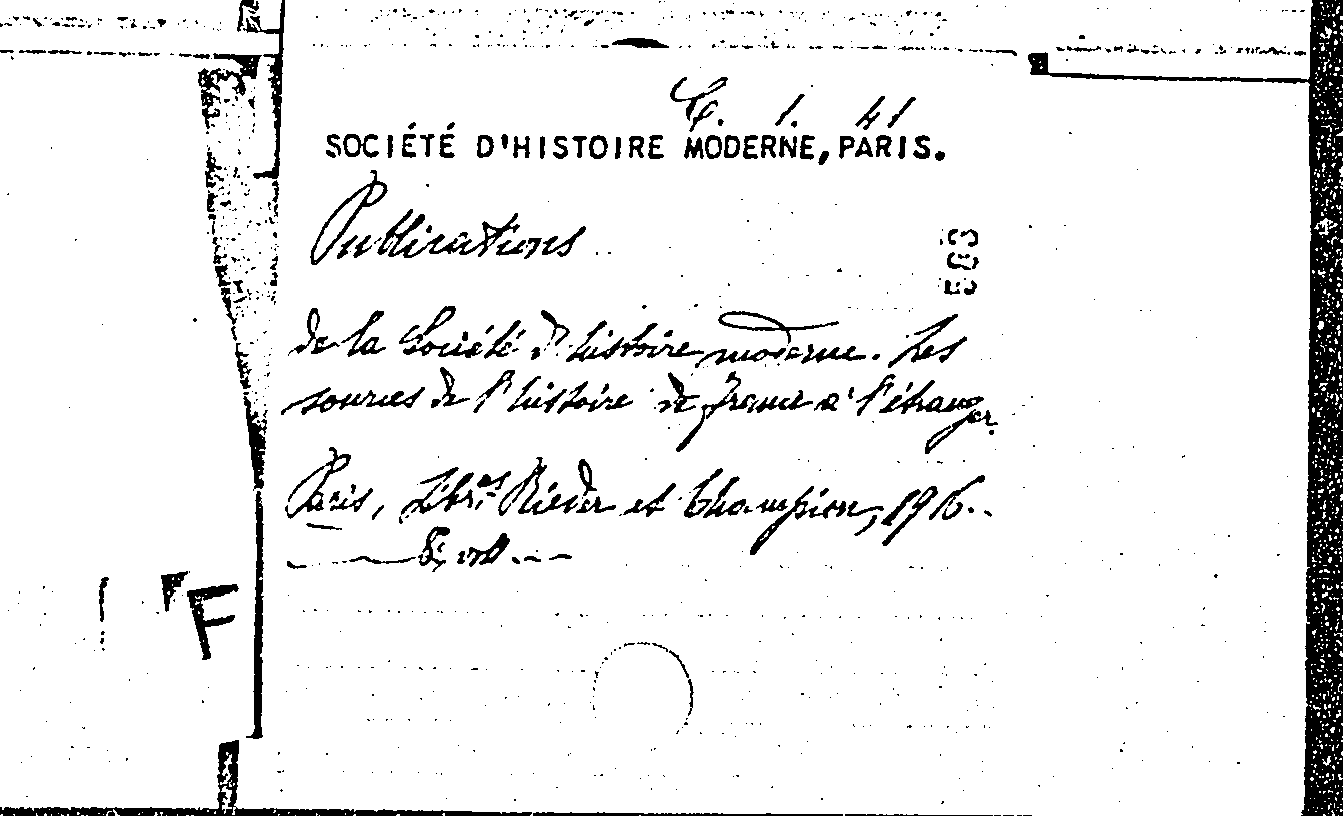 C. 1. 41
SOCIÉTÉ D'HISTOIRE MODERNE, PARIS.
Publications
503
de la Société d'histoire moderne. Les
sources de l'histoire de France à l'étranger.
Paris, Libries Rieder et Champion, 1916..
vol.
F